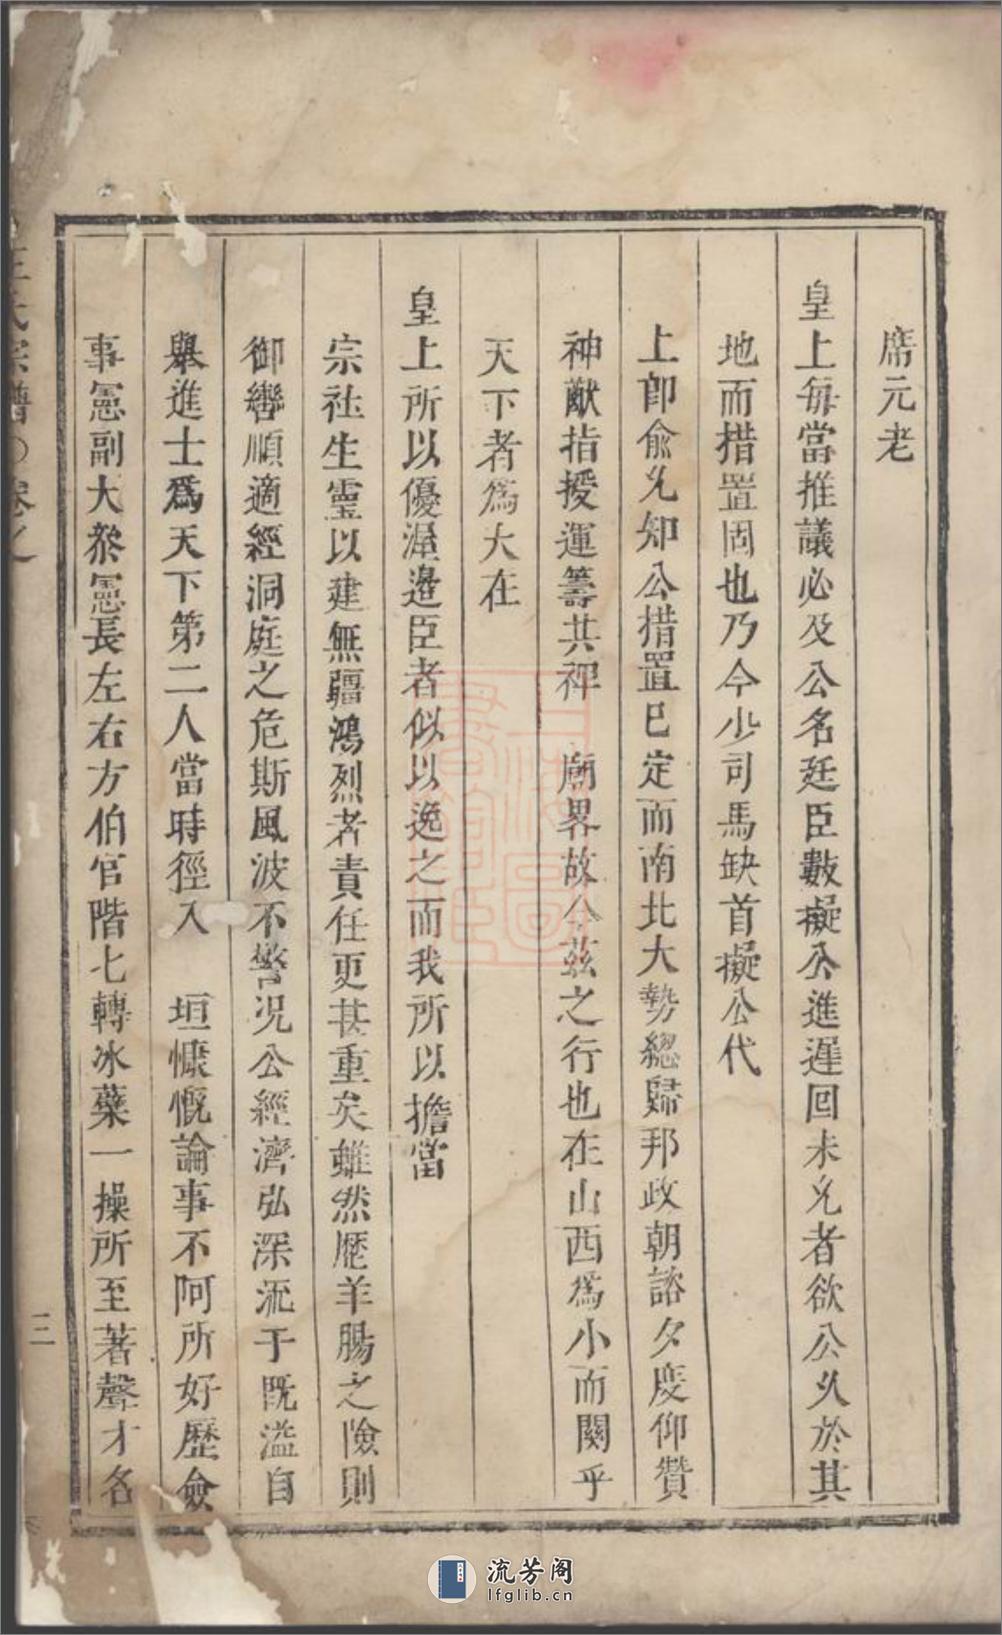 席元老
皇上每當推議必及公名廷臣數擬公進遲回未允者欲公久於其
地而措置固也乃今少司馬缺首擬公代
上卽俞允知公措置已定而南北大勢總歸邦政朝諮夕度仰贊
神猷指授運籌共禆 廟畧故公茲之行也在山西爲小而關乎
天下者爲大在
皇上所以優渥邉臣者似以逸之而我所以擔當
宗社生靈以建無疆鴻烈者責任更甚重矣雖然歷羊腸之險則
御轡順適經洞庭之危斯風波不警况公經濟弘深流于旣溢自
舉進士爲天下第二人當時徑入 垣慷慨論事不阿所好歷僉
事憲副大叅憲長左右方伯官階七轉冰蘗一操所至著聲才名
王氏宗譜 卷之
三
流芳阁
lfglib.cn